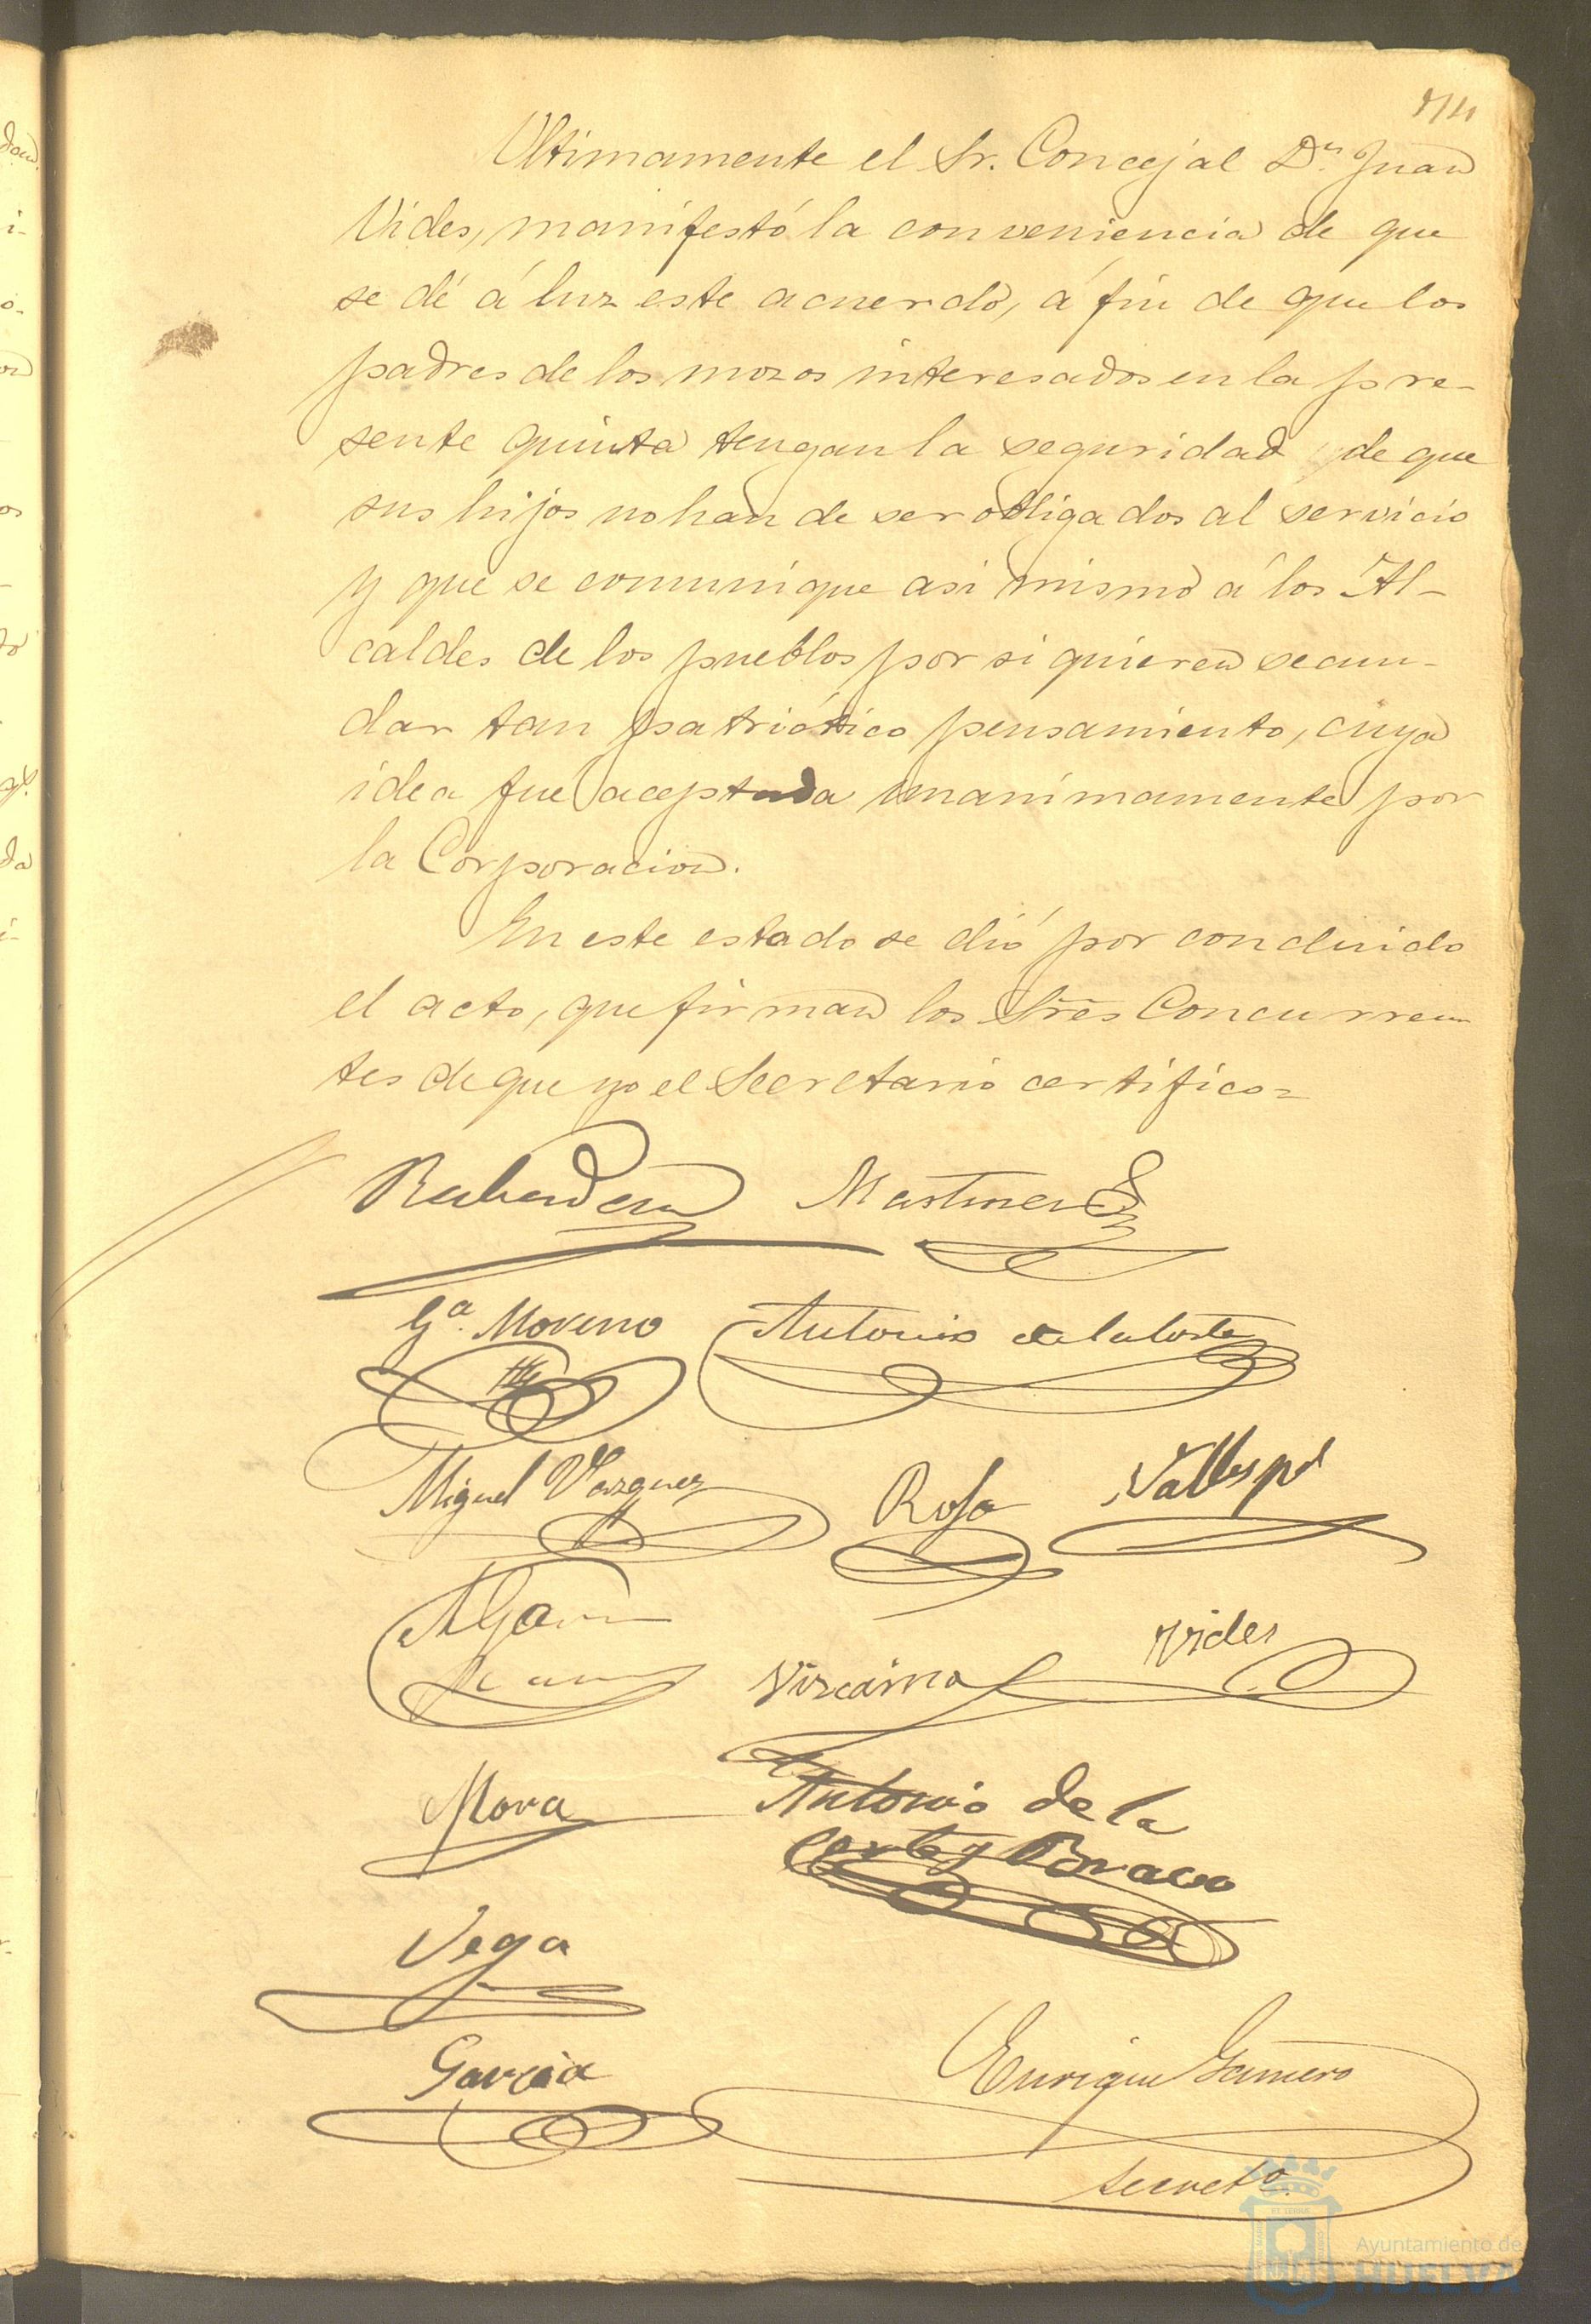 Ultimamente el Sr. Concejal Dn. Juan
Vides, manifestó la conveniencia de que
se dé á luz este acuerdo, á fin de que los
padres de los mozos interesados en la pre-
sente quinta tengan la seguridad de que
sus hijos no han de ser obligados al servicio
y que se comunique asi mismo á los Al-
caldes de los pueblos por si quieren secun-
dar tan patriótico pensamiento, cuya
idea fué aceptada unanimamente por
la Corporacion.
En este estado se dió por concluido
el acto, que firman los Sres Concurren
tes de que yo el Secretario certifico=
Martinez
Ga. Moreno Antonio de la Corte
Miguel Vazquez Rofa Vallespi
Vizcaino Vides
Mora Antonio de la
Corte y Bravo
Vega
Garcia
Enrique Gamero
Secreto.
Ayuntamiento de
HUELVA